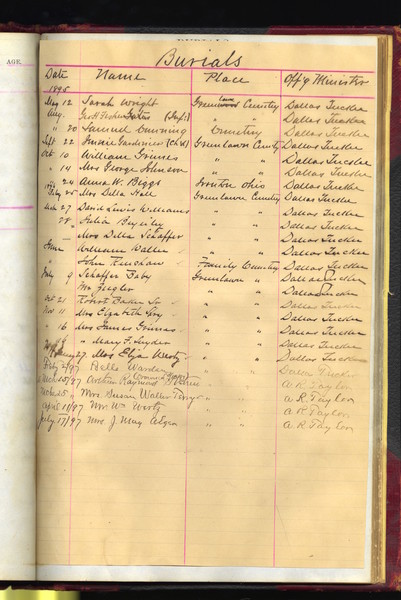 AGE.
Burials
Date Name Place Off'g Minister
1895
May 12 Sarah Wright Greenlawn Cemetery Dallas Tucker
Aug. " " Dallas Tucker
" 20 Samuel Cemetery Dallas Tucker
Sept 22 Gardiner (child) Greenlawn Cemetery Dallas Tucker
Oct 10 William Grimes " " Dallas Tucker
" 14 Mrs George Johnson " " Dallas Tucker
" 24 Anna W. Biggs Ironton Ohio Dallas Tucker
25 Mrs Della Hall Greenlawn Cemetery Dallas Tucker
27 David Lewis Williams " " Dallas Tucker
28 Julia Beyerley " " Dallas Tucker
Mrs Della Schaffer " " Dallas Tucker
June William Waller " " Dallas Tucker
" John Family Cemetery Dallas Tucker
July 9 Schaffer Baby Greenlawn " Dallas Tucker
Mr Ziegler " " Dallas Tucker
Oct 21 Robert Baker Sr " " Dallas Tucker
Nov 11 Mrs Elizabeth " " Dallas Tucker
" 16 Mrs James Grimes " " Dallas Tucker
Mary F. Snyder " " Dallas Tucker
27 Mrs Eliza " " Dallas Tucker
Belle " " Dallas Tucker
March 25/97 Arthur Raymond " " A R Taylor
March 25 " Mrs. Susan Waller Terry " " A R Taylor
April 11/97 Mr. Wm Wertz " " A R Taylor
July 17/97 Mrs. J. May " " A R Taylor